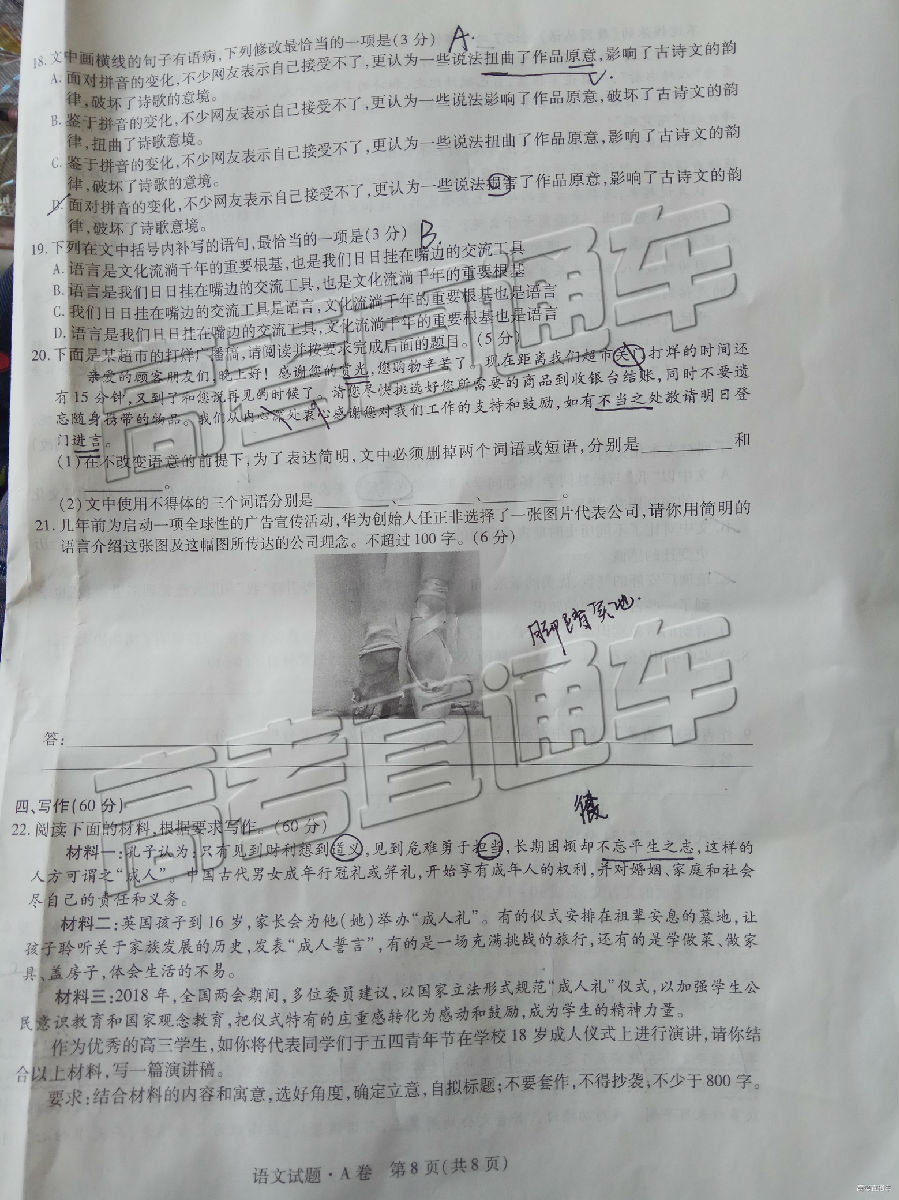 18.文中画横线的句子有语病,下列修改最恰当的一项是(3分) A.
A.面对拼音的变化,不少网友表示自己接受不了,更认为一些说法扭曲了作品原意,影响了古诗文的韵
律,破坏了诗歌的意境。
B.鉴于拼音的变化,不少网友表示自己接受不了,更认为一些说法影响了作品原意,破坏了古诗文的韵
律,扭曲了诗歌意境。
C.鉴于拼音的变化,不少网友表示自己接受不了,更认为一些说法扭曲了作品原意,影响了古诗文的韵
律,破坏了诗歌的意境。
D.面对拼音的变化,不少网友表示自己接受不了,更认为一些说法损害了作品原意,影响了古诗文的韵
律,破坏了诗歌意境。
19.下列在文中括号内补写的语句,最恰当的一项是(3分) B.
A.语言是文化流淌千年的重要根基,也是我们日日挂在嘴边的交流工具
B.语言是我们日日挂在嘴边的交流工具,也是文化流淌千年的重要根基
C.我们日日挂在嘴边的交流工具是语言,文化流淌千年的重要根基也是语言
D.语言是我们日日挂在嘴边的交流工具,文化流淌千年的重要根基也是语言
20.下面是某超市的打烊广播稿,请阅读并按要求完成后面的题目。(5分)
亲爱的顾客朋友们,晚上好!感谢您的贲光,您购物辛苦了。现在距离我们超市关门打烊的时间还
有15分钟,又到了和您说再见的时候了。请您尽快挑选好您所需要的商品到收银台结账,同时不要遗
忘随身携带的物品。我们从内心深处衷心感谢您对我们工作的支持和鼓励,如有不当之处敬请明日登
门进言。
(1)在不改变语意的前提下,为了表达简明,文中必须删掉两个词语或短语,分别是 和
。
(2)文中使用不得体的三个词语分别是 、 、 。
21.几年前为启动一项全球性的广告宣传活动,华为创始人任正非选择了一张图片代表公司,请你用简明的
语言介绍这张图及这幅图所传达的公司理念。不超过100字。(6分)
脚踏实地.
答:
四、写作(60分)
22.阅读下面的材料,根据要求写作。(60分)
材料一:孔子认为:只有见到财利想到道义,见到危难勇于担当,长期困顿却不忘平生之志,这样的
人方可谓之“成人”。中国古代男女成年行冠礼或笄礼,开始享有成年人的权利,并对婚姻、家庭和社会
尽自己的责任和义务。
材料二:英国孩子到16岁,家长会为他(她)举办“成人礼”。有的仪式安排在祖辈安息的墓地,让
孩子聆听关于家族发展的历史,发表“成人誓言”,有的是一场充满挑战的旅行,还有的是学做菜、做家
具、盖房子,体会生活的不易。
材料三:2018年,全国两会期间,多位委员建议,以国家立法形式规范“成人礼”仪式,以加强学生公
民意识教育和国家观念教育,把仪式特有的庄重感转化为感动和鼓励,成为学生的精神力量。
作为优秀的高三学生,如你将代表同学们于五四青年节在学校18岁成人仪式上进行演讲,请你结
合以上材料,写一篇演讲稿。
要求:结合材料的内容和寓意,选好角度,确定立意,自拟标题;不要套作,不得抄袭,不少于800字。
语文试题·A卷 第8页(共8页)
高考直通车
高考直通车